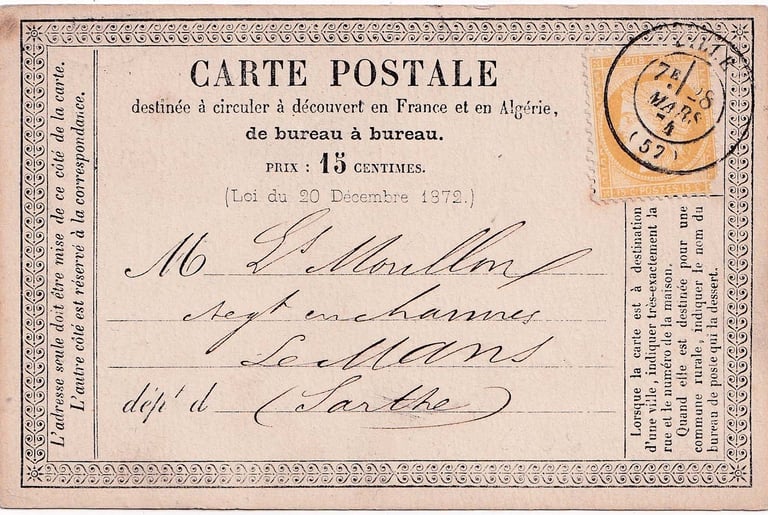 CARTE POSTALE
destinée à circuler à découvert en France et en Algérie,
de bureau à bureau.
PRIX : 15 CENTIMES.
(Loi du 20 Décembre 1872.)
M Ls Moullon
Aegt en chanvres
Le Mans
dépt d (Sarthe)
L'adresse seule doit être mise de ce côté de la carte.
L'autre côté est réservé à la correspondance.
LILLE
7E 28
MARS
74
(57)
15 C POSTES 15 C
Lorsque la carte est à destination
d'une ville, indiquer très-exactement la
rue et le numéro de la maison.
Quand elle est destinée pour une
commune rurale, indiquer le nom du
bureau de poste qui la dessert.